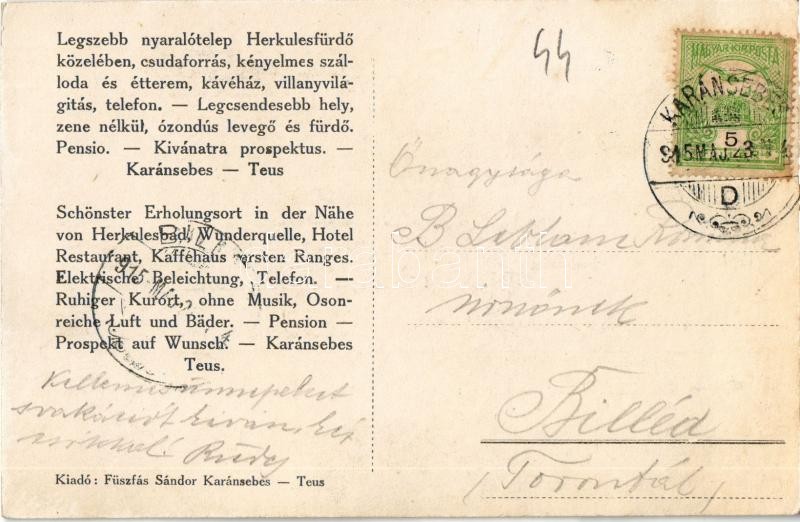 Legszebb nyaralótelep Herkulesfürdő
közelében, csudaforrás, kényelmes szál-
loda és étterem, kávéház, villanyvilá-
gitás, telefon. — Legcsendesebb hely,
zene nélkül, ózondús levegő és fürdő.
Pensio. — Kivánatra prospektus. —
Karánsebes — Teus
Schönster Erholungsort in der Nähe
von Herkulesbad, Wunderquelle, Hotel
Restaurant, Kaffehaus ersten Ranges.
Elektrische Beleichtung, Telefon. —
Ruhiger Kurort, ohne Musik, Oson-
reiche Luft und Bäder. — Pension —
Prospekt auf Wunsch. — Karánsebes
Teus.
Kellemes ünnepeket
kiván
Rudy
Kiadó: Füszfás Sándor Karánsebes — Teus
44
MAGYAR KIR. POSTA
5
KARÁNSEBES
915 MÁJ. 23
D
915 MÁ
Önagysága
B
Billéd
(Torontál)